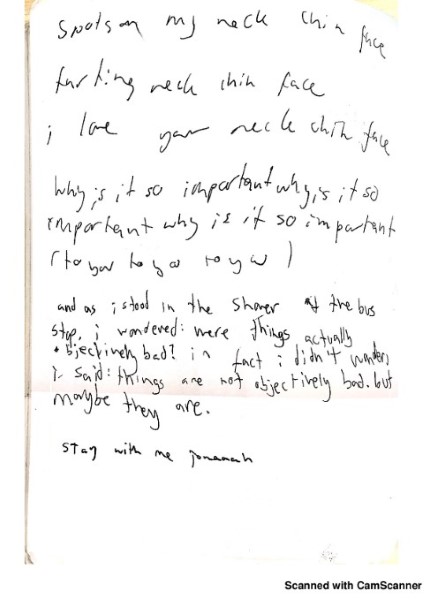 spots on my neck chin face
farting neck chin face
i love your neck chin face
why is it so important why is it so
important why is it so important
(to you to you to you)
and as i stood in the shower at the bus
stop, i wondered: were things actually
objectively bad? in fact i didn't wonder,
i said: things are not objectively bad. but
maybe they are.
stay with me
Scanned with CamScanner